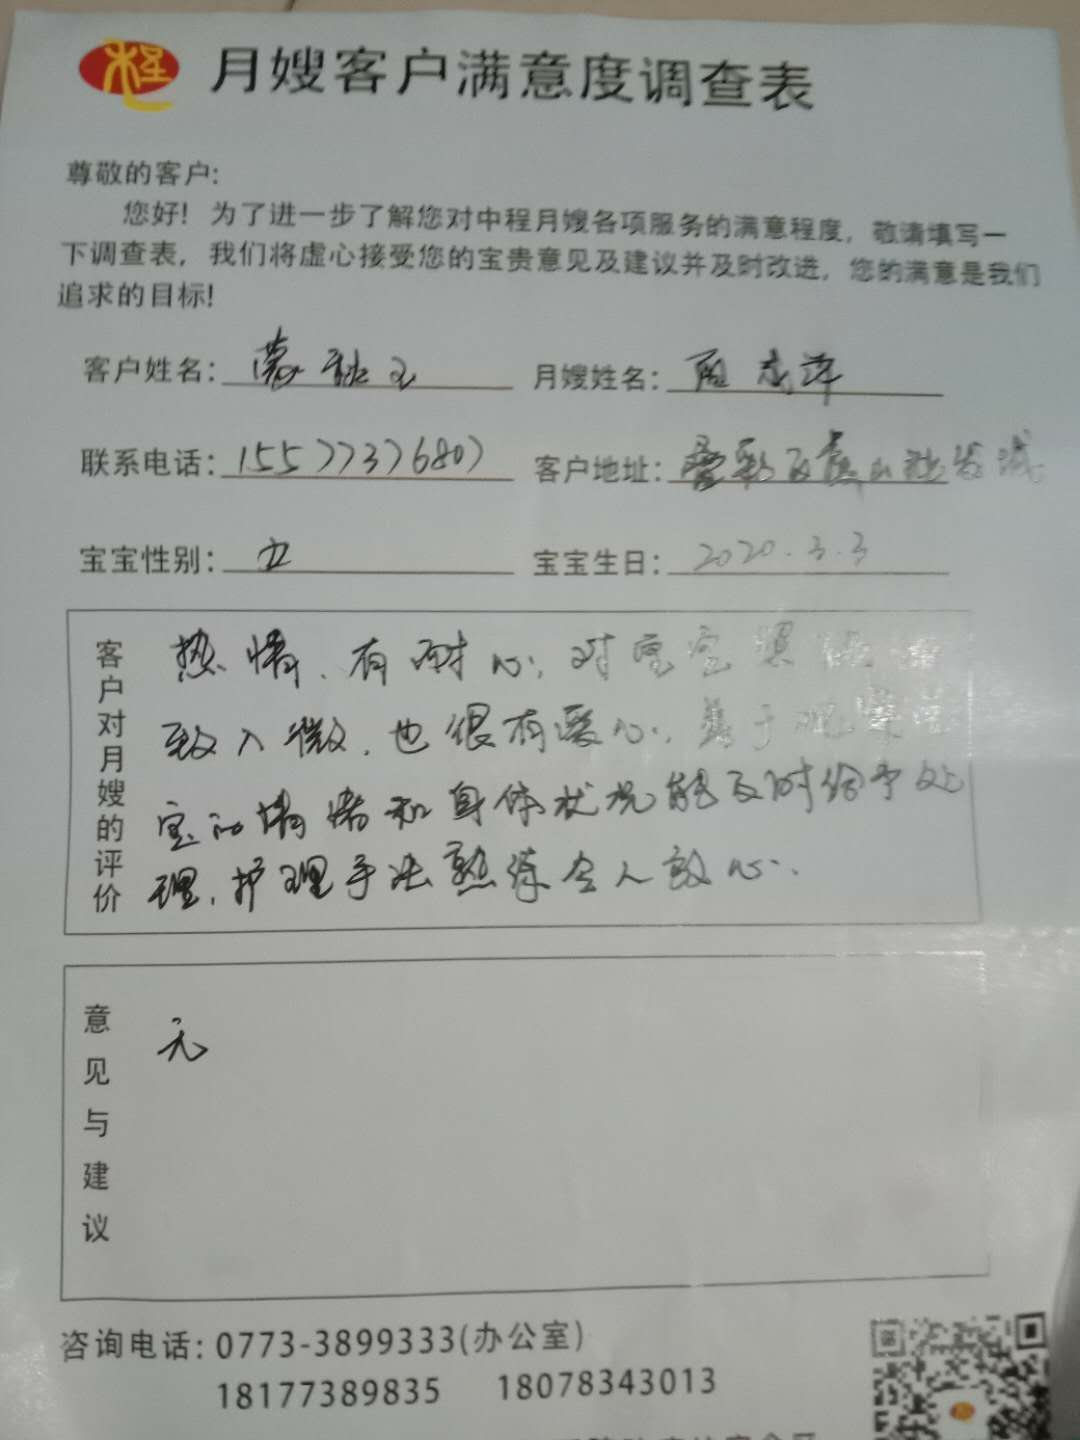 程
月嫂客户满意度调查表
尊敬的客户:
您好！为了进一步了解您对中程月嫂各项服务的满意程度，敬请填写一
下调查表，我们将虚心接受您的宝贵意见及建议并及时改进，您的满意是我们
追求的目标!
客户姓名: 月嫂姓名:
联系电话: 15577376807 客户地址: 叠彩区
宝宝性别: 女 宝宝生日: 2020.3.3
客户对月嫂的评价
热情、有耐心，对宝宝照
致入微，也很有爱心，善于观察宝
宝的情绪和身体状况能及时给予处
理，护理手法熟练令人放心.
意见与建议
无
咨询电话: 0773-3899333(办公室)
18177389835 18078343013